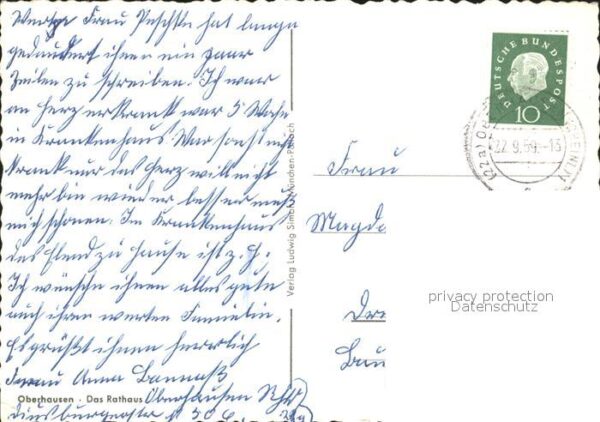 Werte Frau Peschke hat lange
gedauert ihnen ein paar
Zeilen zu schreiben. Ich war
an Herz erkrankt war 5 Woche
in Krankenhaus War sonst nie
krank nur das Herz will nicht
mehr bin wieder besser muß
mich schonen. Im Krankenhaus
das Elend zu hause ist z. H.
Ich wünsche ihnen alles gute
auch ihrer werten Familie.
Es grüßt ihnen herrlich
Frau Anna
Oberhausen · Das Rathaus Oberhausen Rhld
Duisburgerstr
Verlag Ludwig Simon, München-Pullach
DEUTSCHE BUNDESPOST
10
(22a) OBERHAUSEN
22.9.59.-13
Frau
Magda
Dre
Bau
privacy protection
Datenschutz